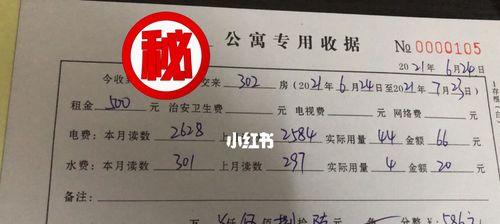 秘 公寓专用收据 No 0000105
2021年6月24日
今收到 交来 302 房(2021年6月24日至2021年7月23日)
租金 500 元 治安卫生费 元 电视费 元 网络费
电费:本月读数 2628 上 2584 实际用量 44 金额 66
小红书
水费:本月读数 301 上月读数 297 实际用量 4 金额 20
备注:
万 仟 伍 佰 捌 拾 陆 元 分整¥ 586